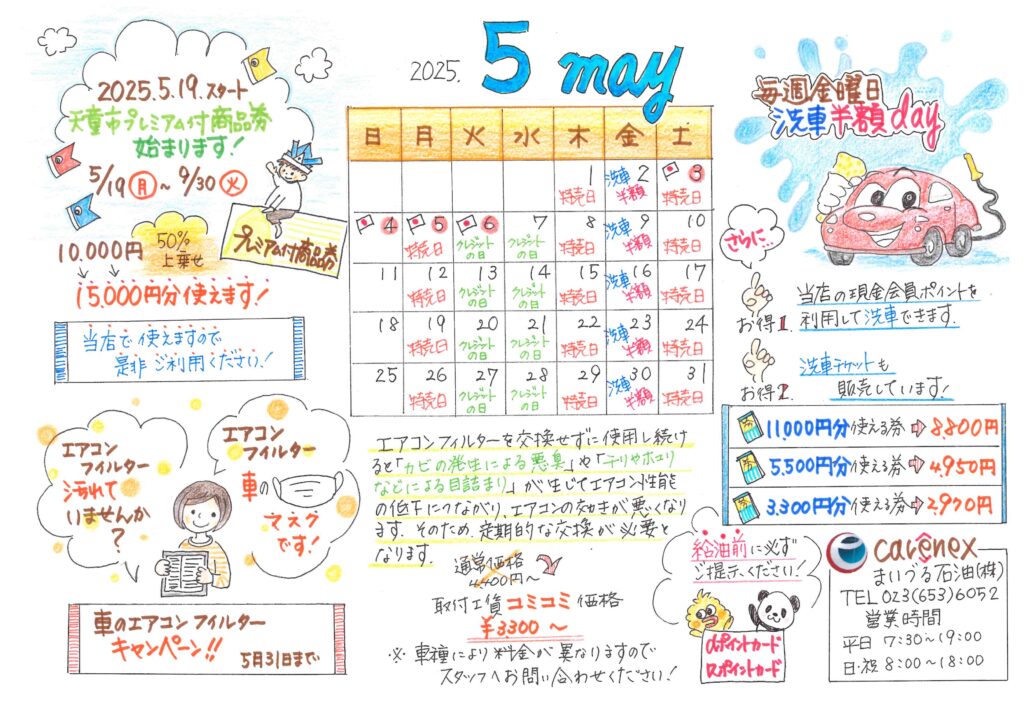 2025.5.19.スタート
天童市プレミアム付商品券
始まります!
5/19(月)~9/30(火)
10.000円
50%
上乗せ
15.000円分使えます!
プレミアム付商品券
当店で使えますので
是非ご利用ください!
2025. 5 may
日 月 火 水 木 金 土
1 2 3
特売日 洗車半額 特売日
4 5 6 7 8 9 10
特売日 クレジットの日 クレジットの日 特売日 洗車半額 特売日
11 12 13 14 15 16 17
特売日 クレジットの日 クレジットの日 特売日 洗車半額 特売日
18 19 20 21 22 23 24
特売日 クレジットの日 クレジットの日 特売日 洗車半額 特売日
25 26 27 28 29 30 31
特売日 クレジットの日 クレジットの日 特売日 洗車半額 特売日
毎週金曜日
洗車半額day
さらに…
お得1.
当店の現金会員ポイントを
利用して洗車できます.
お得2.
洗車チケットも
販売しています!
11,000円分使える券⇨8,800円
5,500円分使える券⇨4,950円
3,300円分使える券⇨2,970円
エアコン
フィルター
汚れて
いませんか
?
エアコン
フィルター
車の
マスク
です!
車のエアコンフィルター
キャンペーン!!
5月31日まで
エアコンフィルターを交換せずに使用し続け
ると「カビの発生による悪臭」や「チリやホコリ
などによる目詰まり」が生じてエアコン性能
の低下につながり、エアコンの効きが悪くなり
ます. そのため、定期的な交換が必要と
なります.
通常価格
4,400円~
取付工賃コミコミ価格
¥3,300~
※ 車種により料金が異なりますので
スタッフへお問い合わせください!
給油前に必ず
ご提示ください!
dポイントカード
Rポイントカード
carenex
まいづる石油(株)
TEL 023(653)6052
営業時間
平日 7:30~19:00
日・祝 8:00~18:00